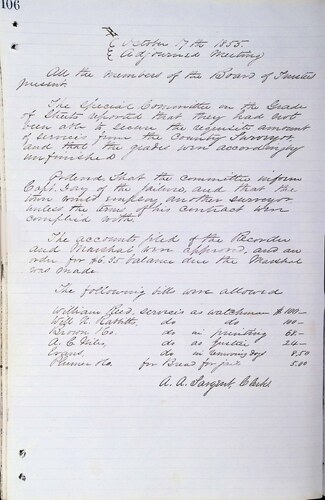 106
October 17th 1855
Adjourned Meeting
All the members of the Board of Trustees
present.
The Special Committee on the Grade
of Streets reported that they had not
been able to secure the requisite amount
of services from the County Surveyor
and that the grades were accordingly
unfinished
Ordered That the committee inform
Capt. Day of the failure, and that the
town would employ another surveyor
unless the terms of his contract were
complied with
The accounts filed of the Recorder
and Marshal were approved, and an
order for $6.25 balance due the Marshal
was made
The following bills were allowed
William Reed, services as watchman $100—
Will A. do do 100—
Brown & Co. do in printing 68—
A. C. Niles, do as justice 24—
do in removing dog 8.50
& Co. for Bread for jail 5.00
A. A. Sargent Clerk